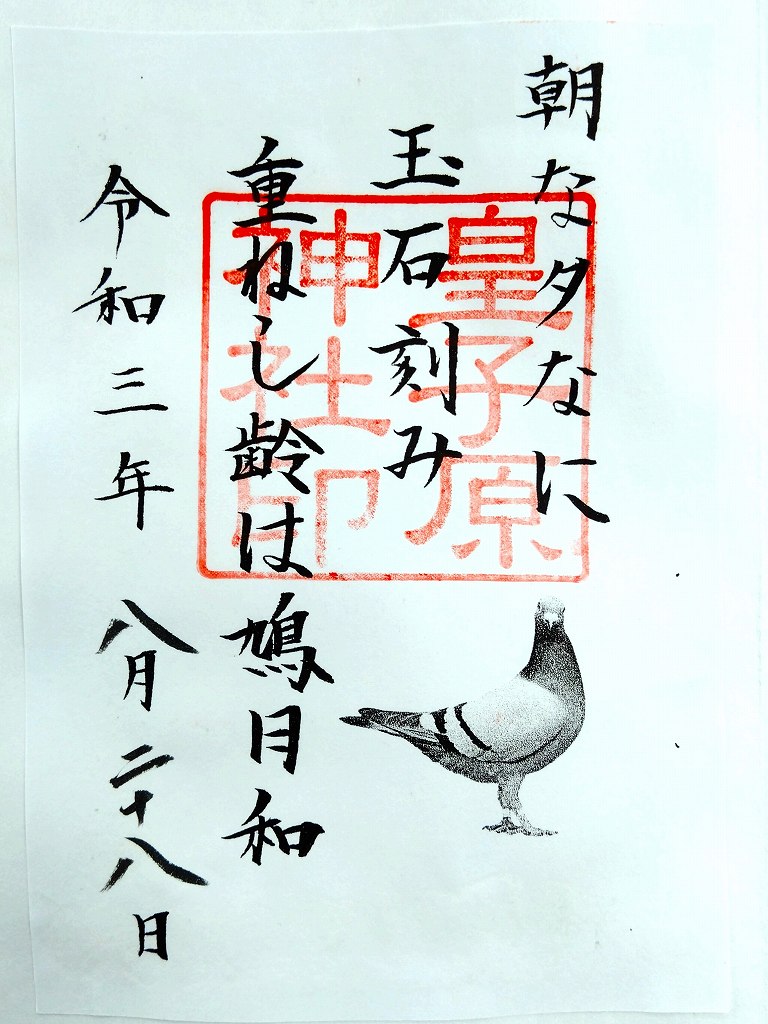 朝な夕なに
玉石刻み
重ねし齢は鳩日和
令和三年 八月二十八日
皇子原
神社印